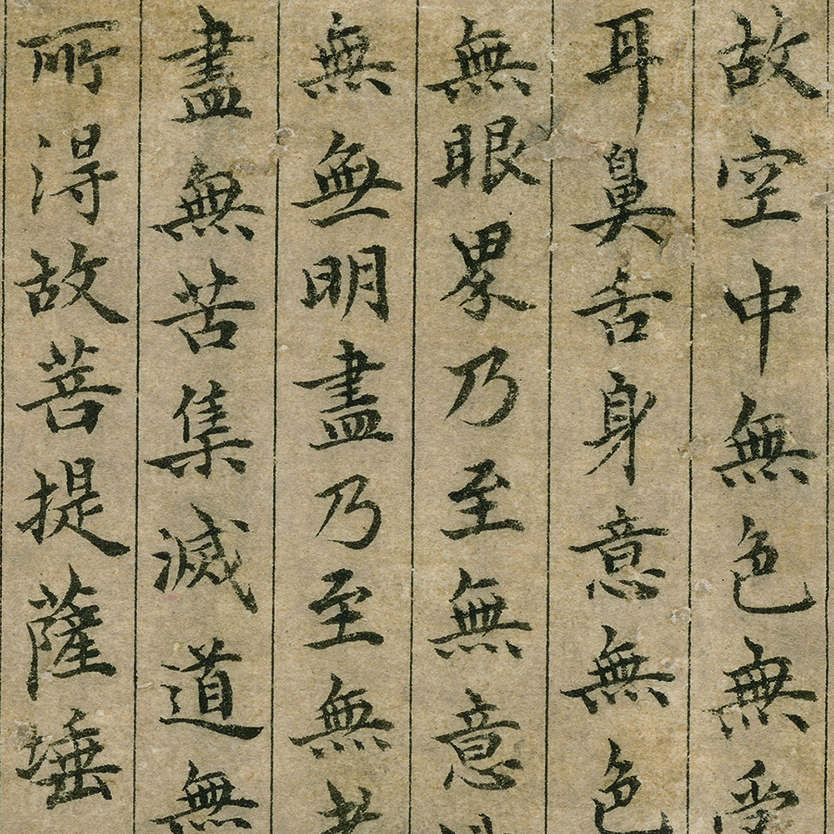 故空中無色無受
耳鼻舌身意無色
無眼界乃至無意
無無明盡乃至無老
盡無苦集滅道無
所得故菩提薩埵